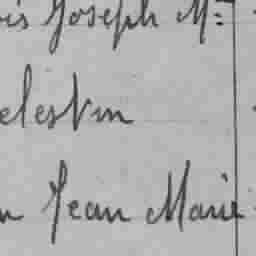 is Joseph M.
elestin
n Jean Marie